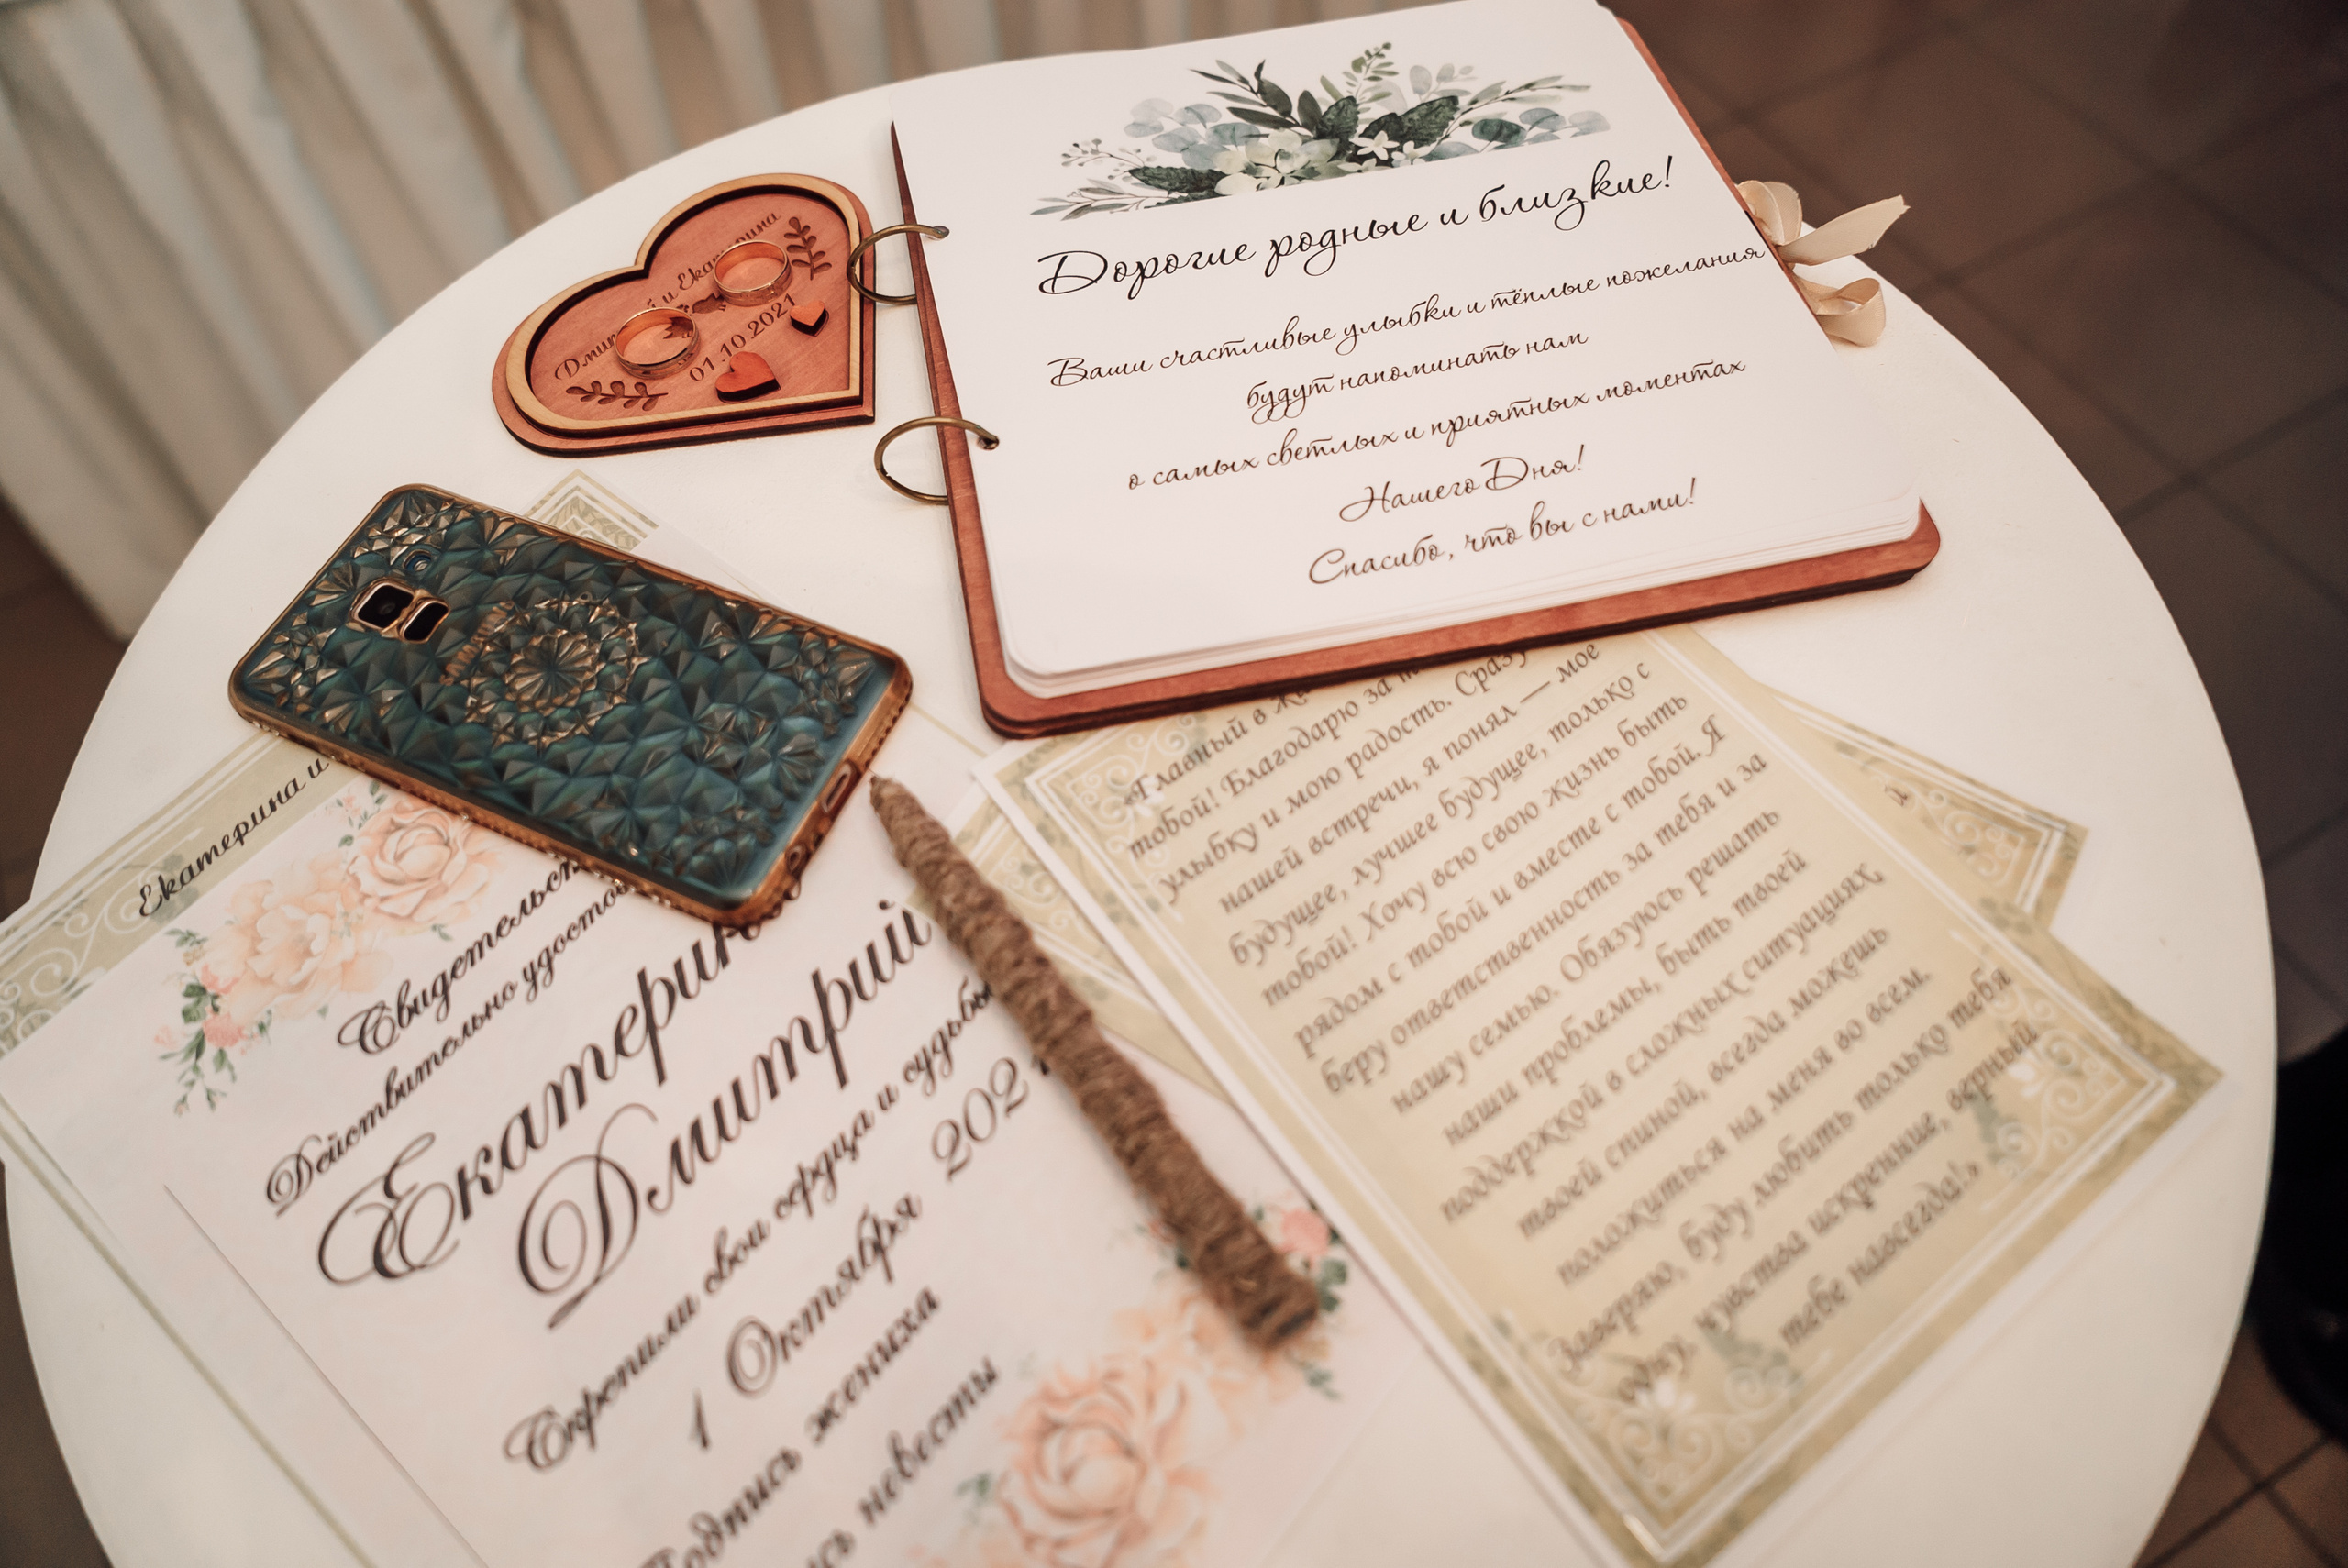 Дорогие родные и близкие!
Ваши счастливые улыбки и тёплые пожелания
будут напоминать нам
о самых светлых и приятных моментах
Нашего Дня!
Спасибо, что вы с нами!
и Екатерина
01.10.2021
Екатерина и
Действительно
Екатерин
Дмитрий
Скрепили свои сердца и судьбы
1 Октября 202
Подпись жениха
невесты
«Главный в
тобой! Благодарю за
улыбку и мою радость. Сразу
нашей встречи, я понял — мое
будущее, лучшее будущее, только с
тобой! Хочу всю свою жизнь быть
рядом с тобой и вместе с тобой. Я
беру ответственность за тебя и за
нашу семью. Обязуюсь решать
наши проблемы, быть твоей
поддержкой в сложных ситуациях,
твоей спиной, всегда можешь
положиться на меня во всем.
Заверяю, буду любить только тебя
одну, чувства искренние, верный
тебе навсегда!»
и